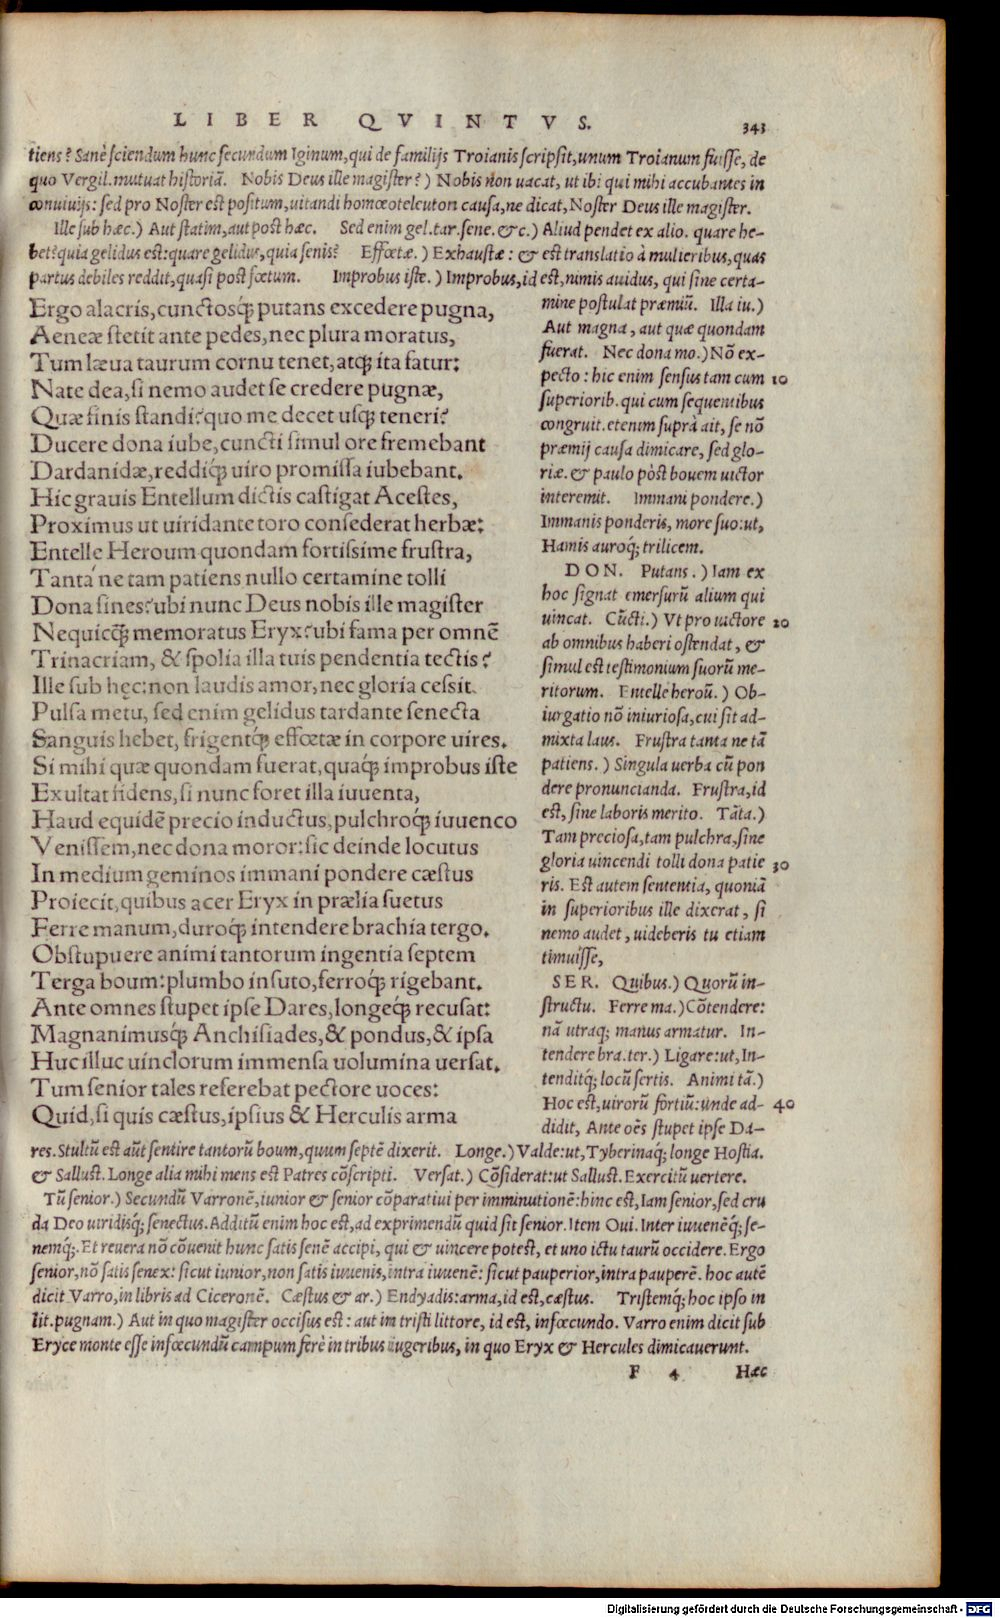 LIBER QVINTVS.
343
tiens? Sanè sciendum hunc secundum Iginum, qui de familijs Troianis scripsit, unum Troianum fuisse, de
quo Vergil. mutuat historiã. Nobis Deus ille magister?) Nobis non uacat, ut ibi qui mihi accubantes in
conuiuijs: sed pro Noster est positum, uitandi homœoteleuton causa, ne dicat, Noster Deus ille magister.
Ille sub hæc.) Aut statim, aut post hæc. Sed enim gel. tar. sene. &c.) Aliud pendet ex alio. quare he-
bet? quia gelidus est: quare gelidus, quia senis? Effœtæ.) Exhaustæ: & est translatio à mulieribus, quas
partus debiles reddit, quasi post fœtum. Improbus iste.) Improbus, id est, nimis auidus, qui sine certa-
Ergo alacris, cunctosq́; putans excedere pugna,
Aeneæ stetit ante pedes, nec plura moratus,
Tum læua taurum cornu tenet, atq; ita fatur:
Nate dea, si nemo audet se credere pugnæ,
Quæ finis standi? quo me decet usq; teneri?
Ducere dona iube, cuncti simul ore fremebant
Dardanidæ, reddiq́; uiro promissa iubebant.
Hic grauis Entellum dictis castigat Acestes,
Proximus ut uiridante toro consederat herbæ:
Entelle Heroum quondam fortissime frustra,
Tantá ne tam patiens nullo certamine tolli
Dona sines? ubi nunc Deus nobis ille magister
Nequicq̃; memoratus Eryx? ubi fama per omnẽ
Trinacriam, & spolia illa tuis pendentia tectis?
Ille sub hęc: non laudis amor, nec gloria cessit.
Pulsa metu, sed enim gelidus tardante senecta
Sanguis hebet, frigentq́; effœtæ in corpore uires.
Si mihi quæ quondam fuerat, quaq́; improbus iste
Exultat fidens, si nunc foret illa iuuenta,
Haud equidẽ precio inductus, pulchroq́; iuuenco
Venissem, nec dona moror: sic deinde locutus
In medium geminos immani pondere cæstus
Proiecit, quibus acer Eryx in prælia suetus
Ferre manum, duroq́; intendere brachia tergo.
Obstupuere animi tantorum ingentia septem
Terga boum: plumbo insuto, ferroq́; rigebant.
Ante omnes stupet ipse Dares, longeq́; recusat:
Magnanimusq́; Anchisiades, & pondus, & ipsa
Huc illuc uinclorum immensa uolumina uersat.
Tum senior tales referebat pectore uoces:
Quid, si quis cæstus, ipsius & Herculis arma
mine postulat præmiũ. Illa iu.)
Aut magna, aut quæ quondam
fuerat. Nec dona mo.) Nõ ex-
pecto: hic enim sensus tam cum 10
superiorib. qui cum sequentibus
congruit. etenim suprà ait, se nõ
præmij causa dimicare, sed glo-
riæ. & paulo pòst bouem uictor
interemit. Immani pondere.)
Immanis ponderis, more suo: ut,
Hamis auroq́; trilicem.
DON. Putans.) Iam ex
hoc signat emersurũ alium qui
uincat. Cũcti.) Vt pro uictore 20
ab omnibus haberi ostendat, &
simul est testimonium suorũ me-
ritorum. Entelle heroũ.) Ob-
iurgatio nõ iniuriosa, cui sit ad-
mixta laus. Frustra tanta ne tã
patiens.) Singula uerba cũ pon
dere pronuncianda. Frustra, id
est, sine laboris merito. Tãta.)
Tam preciosa, tam pulchra, sine
gloria uincendi tolli dona patie 30
ris. Est autem sententia, quoniã
in superioribus ille dixerat, si
nemo audet, uideberis tu etiam
timuisse,
SER. Quibus.) Quorũ in-
structu. Ferre ma.) Cõtendere:
nã utraq; manus armatur. In-
tendere bra. ter.) Ligare: ut, In-
tenditq́; locũ sertis. Animi tã.)
Hoc est, uirorũ fortiũ: unde ad- 40
didit, Ante oẽs stupet ipse Da-
res. Stultũ est aũt sentire tantorũ boum, quum septẽ dixerit. Longe.) Valde: ut, Tyberinaq́; longe Hostia.
& Sallust. Longe alia mihi mens est Patres cõscripti. Versat.) Cõsiderat: ut Sallust. Exercitũ uertere.
Tũ senior.) Secundũ Varronẽ, iunior & senior cõparatiui per imminutionẽ: hinc est, Iam senior, sed cru
da Deo uiridisq́; senectus. Additũ enim hoc est, ad exprimendũ quid sit senior. Item Oui. Inter iuuenẽq́; se-
nemq́;. Et reuera nõ cõuenit hunc satis senẽ accipi, qui & uincere potest, et uno ictu taurũ occidere. Ergo
senior, nõ satis senex: sicut iunior, non satis iuuenis, intra iuuenẽ: sicut pauperior, intra pauperẽ. hoc autẽ
dicit Varro, in libris ad Ciceronẽ. Cæstus & ar.) Endyadis: arma, id est, cæstus. Tristemq́; hoc ipso in
lit. pugnam.) Aut in quo magister occisus est: aut in tristi littore, id est, infœcundo. Varro enim dicit sub
Eryce monte esse infœcundũ campum ferè in tribus iugeribus, in quo Eryx & Hercules dimicauerunt.
F 4 Hæc
Digitalisierung gefördert durch die Deutsche Forschungsgemeinschaft - DFG